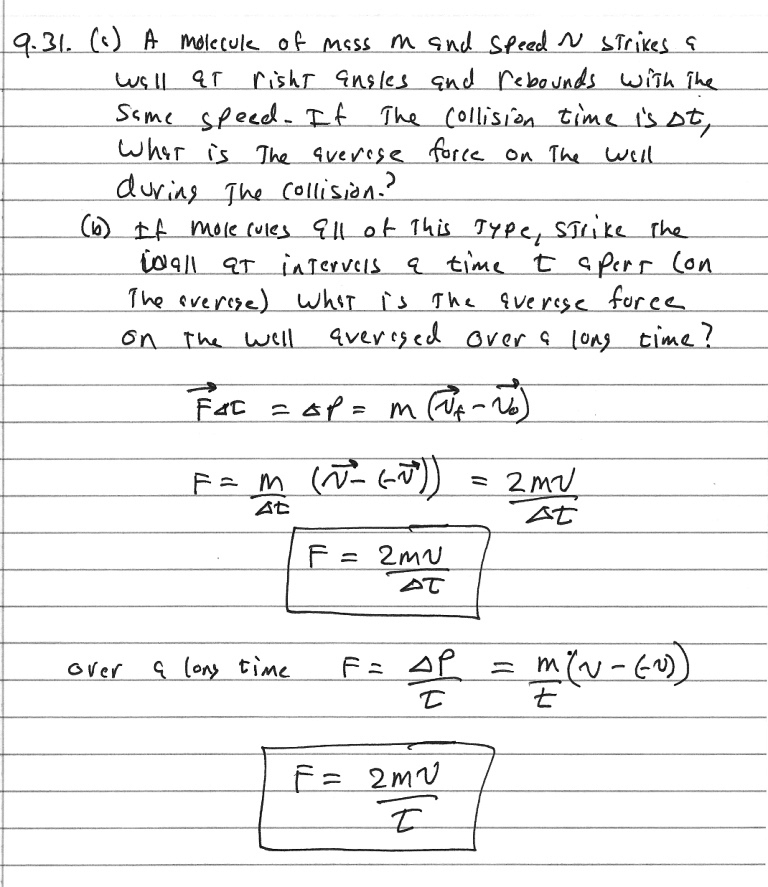 9.31. (a) A molecule of mass m and speed v strikes a
wall at right angles and rebounds with the
same speed. If the collision time is Δt,
what is the average force on the wall
during the collision?
(b) If molecules all of this type, strike the
wall at intervals a time t apart (on
the average) what is the average force
on the wall averaged over a long time?
F⃗Δt = Δp = m (v⃗f - v⃗o)
F = m/Δt (v⃗ - (-v⃗)) = 2mv/Δt
F = 2mv/Δt
over a long time F = Δp/t = m/t (v - (-v))
F = 2mv/t